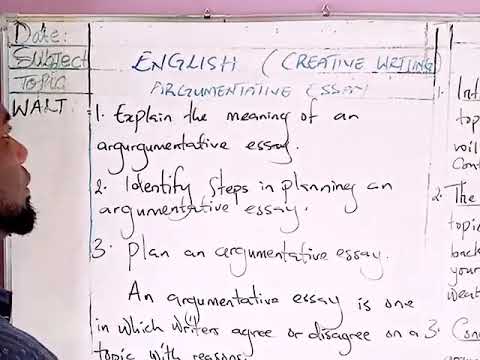 Date:
Subject
ENGLISH (CREATIVE WRITING)
TOPIC
ARGUMENTATIVE ESSAY
WALT
1. Explain the meaning of an
argurgumentative essay.
2. Identify steps in planning an
argumentative essay.
3. Plan an argumentative essay.
An argumentative essay is one
in which writers agree or disagree on a
topic with reasons.
1.
topi
Cont
2. The
topic
back
your
3.